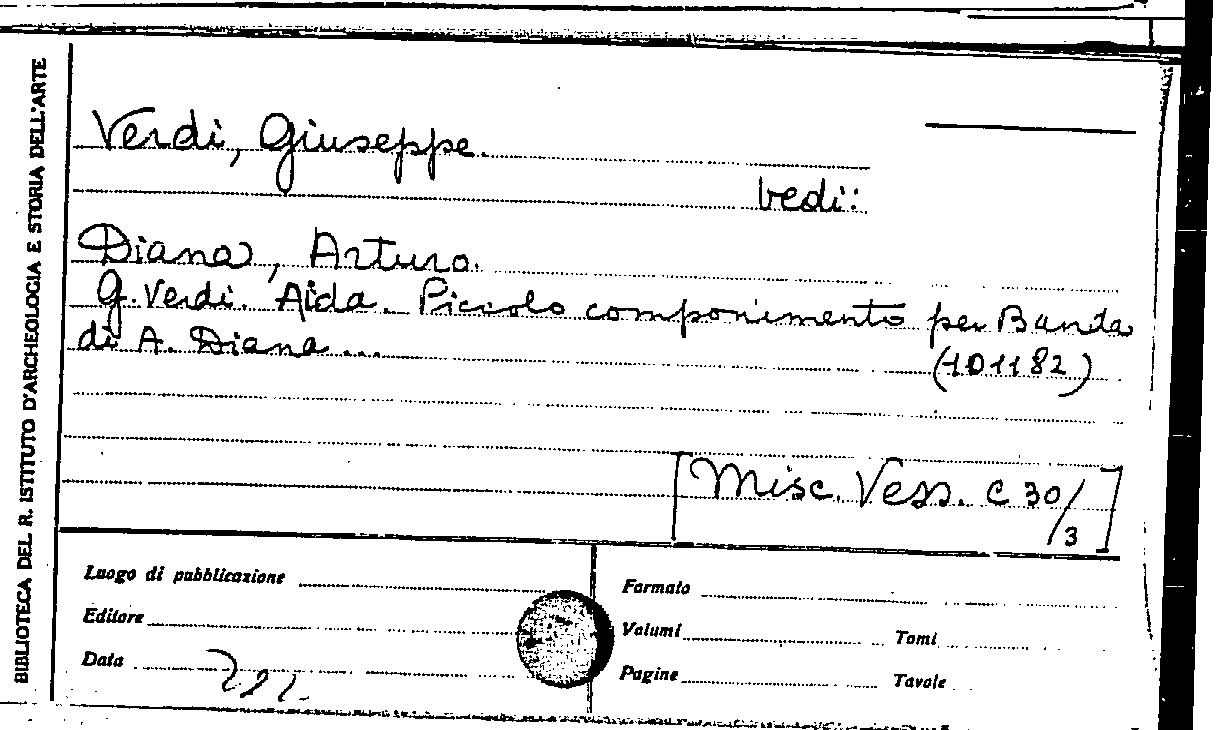 BIBLIOTECA DEL R. ISTITUTO D'ARCHEOLOGIA E STORIA DELL'ARTE
Verdi, Giuseppe.
vedi:
Diana, Arturo.
G. Verdi. Aida. Piccolo componimento per Banda
di A. Diana...
(101182)
[Misc. Vess. C 30/3]
Luogo di pubblicazione
Editore
Data
Formato
Volumi Tomi
Pagine Tavole